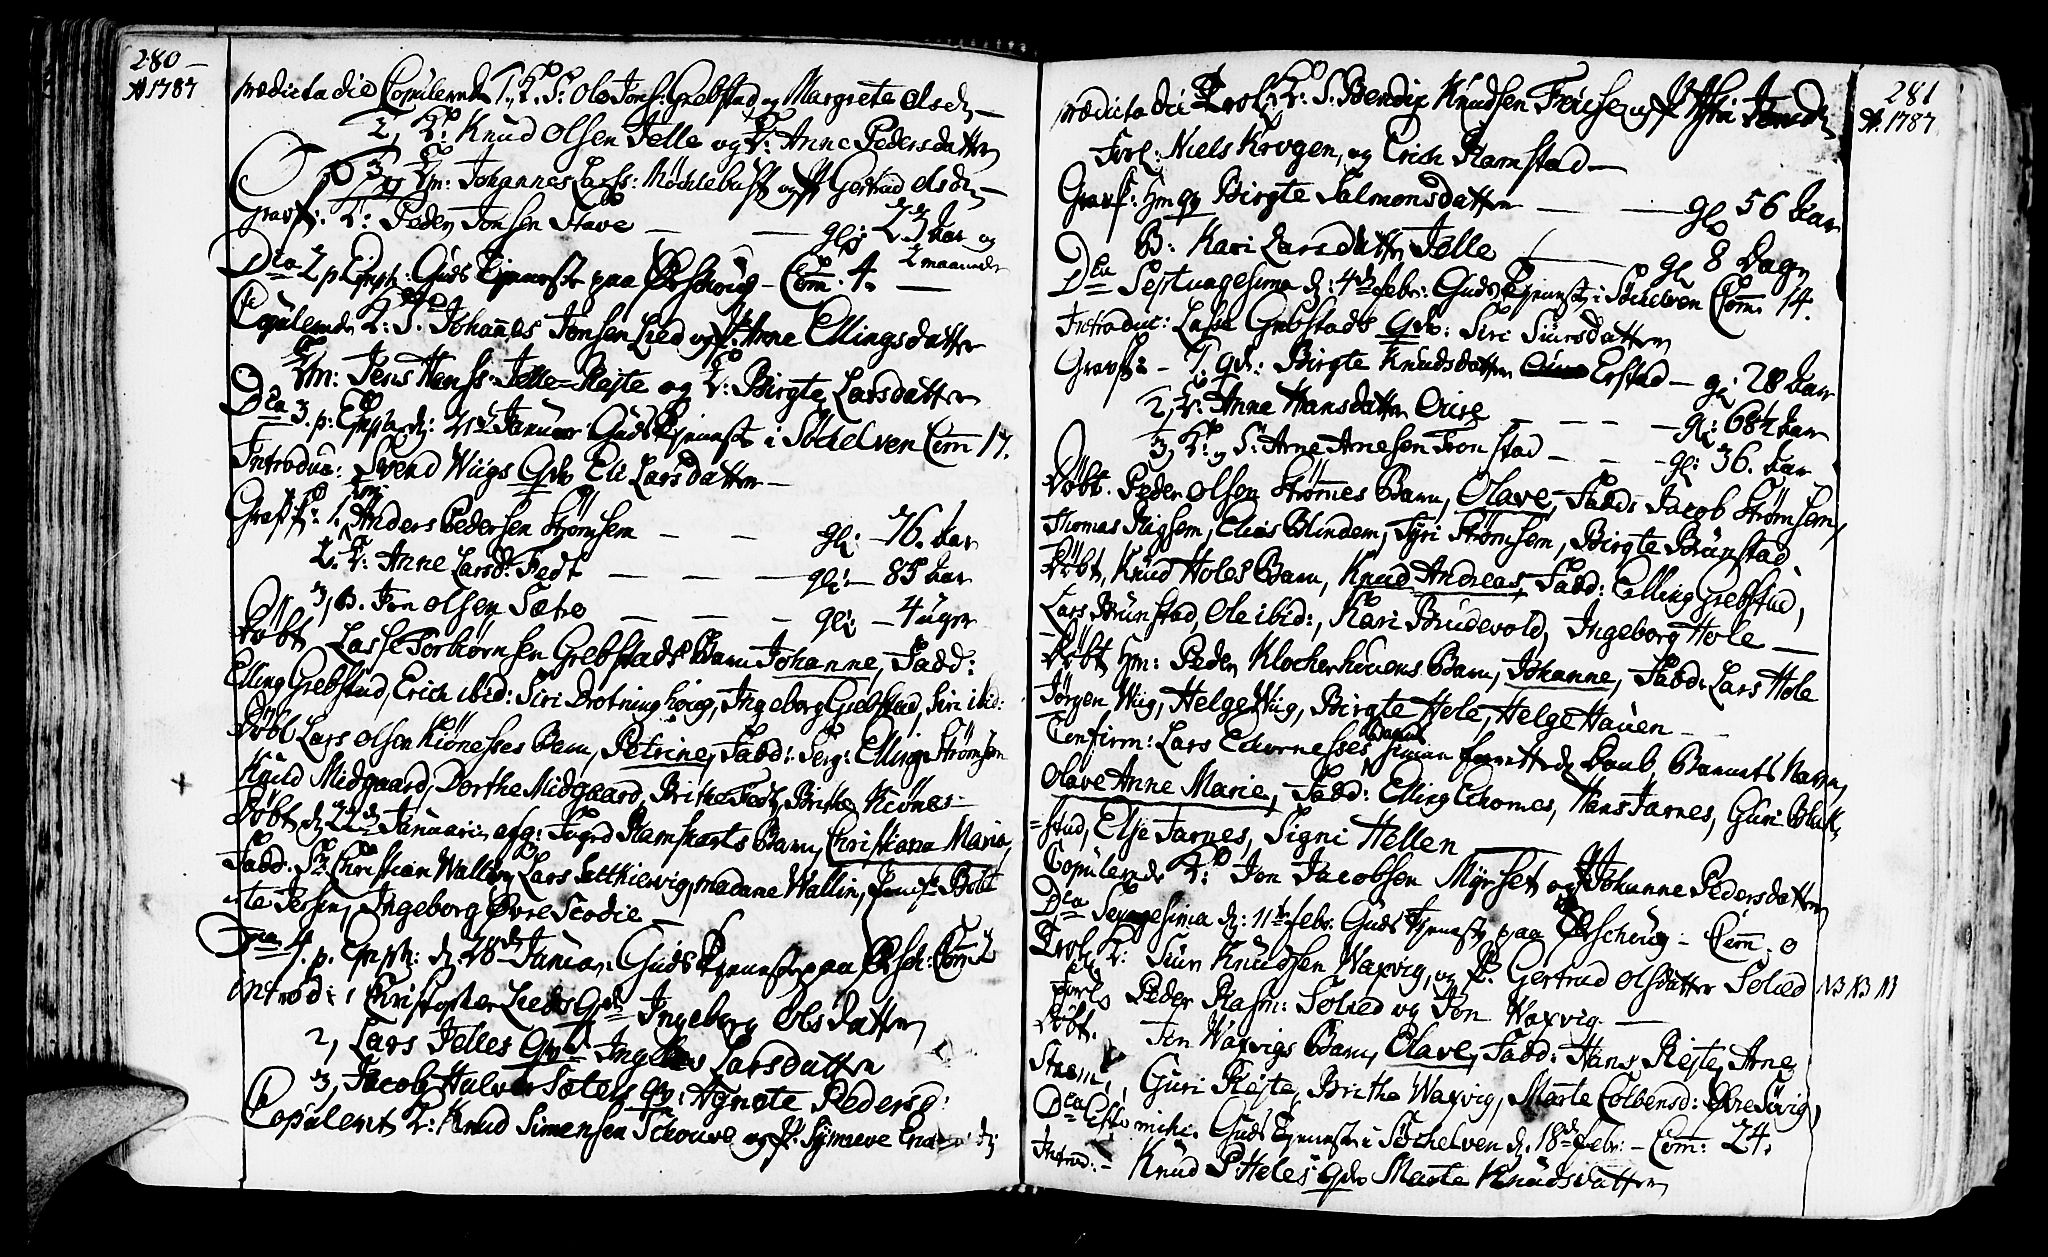 280
Ao 1787
prædicta die Copulerede 1, K. S. Ole Jons: Grebstad og Margrete Olsd.
2, K: Knud Olsen Jelle og P: Anne Pedersdatter
3, Em: Johannes Lass: Nøchlebust og P: Gertrud Olsd.
Gravf: K: Peder Jonsen Stave — gl: 23 Aar og
2 maaneder
Dca 2 p. Epiph: Guds Tjeneste paa Ørschoug — Com. 4.
Copulerede K: S: Johannes Jonsen Lied og P. Anne Ellingsdatter
Em: Jens Hanss: Jelle-Rejte og P: Birgte Larsdatter
Dca 3. p. Epiph. d: 21de Januar Guds Tjeneste i Søchelven Com 17.
Introduc: Svend Wiigs Qvd Eli Larsdatter —
Graff: 1. Em: Anders Pedersen Strømsem — gl: 76. Aar
2. K: Anne Larsd. Fedt — gl: 85 Aar
3, B. Jon Olsen Sætre — gl: 4 uger
Døbt Lasse Torbørnsen Grebstads Barn Johanne, Fadd:
Elling Grebstad, Erich ibid: Siri Drotninghoug, Ingeborg Grebstad, Siri ibid:
Døbt Lars Olsen Kiønesses Barn, Petrine, Fadd: Serg: Elling Strømsem
Knud Midgaard, Dorthe Midgaard, Brithe Fedt, Brithe Kiønes
Døbt d 22de Januarii, afg: Foged Kamstrups Barn, Christiana Maria,
Fadd. Sr. Christian Wallin, Lars Setthiervig, madame Wallin,
Jersen, Ingeborg Øvre Scodie —
Dca 4. p. Epiph: d. 28de Januar. Guds Tjeneste paa Ørsch: Com
introd: 1 Christopher Lieds Qvd Ingeborg Olsdatter
2, Lars Jelles Qvd Ingebor Larsdatter
3, Jacob Halvor Sætres qv: Agnete Pedersd:
Copuleret K: Knud Simensen Schouve og P. Symneve
281
A. 1787
prædicta die Trol: K: S: Bendix Knudsen
Forl: Niels Krogen, og Erich Ramstad —
Gravf: Hm qv Birgte Salmonsdatter — gl 56 Aar
B: Kari Larsdatter Jelle — gl 8 Dage
Dca Septuagesima d: 4de febr: Guds Tjeneste i Søchelven Com 14.
Introduc: Lasse Grebstads Qvd: Siri Siursdatter
Gravf: — 1. qv: Birgte Knudsdatter Erstad — gl: 28 Aar
2, K: Anne Hansdatter — gl: 68½ Aar
3, K: og S: Arne Arnesen Tronstad — gl: 36. Aar
Døbt. Peder Olsen Strømes Barn, Olave, Fadd: Jacob Strømsem,
Thomas Rigsem, Elias Blindem, Syri Strømsem, Birgte Brunstad,
Døbt, Knud Holes Barn, Knud Andreas, Fadd: Elling Grebstad,
Lars Brunstad, Ole ibid:, Kari Brudevold, Ingeborg Hole —
Døbt Hm: Peder Klocherhouens Barn, Johanne, Fadd: Lars Hole
Jørgen Wiig, Helge Wiig, Birgte Hole, Helge Hauen —
Confirm: Lars Echornesses Daab, Barnets Navn,
Olave Anne Marie, Fadd: Elling Echornes, Hans Jarnes, Guri Blak-
stad, Else Jarnes, Signi Hellen —
Copulerede K: Jon Jacobsen Myrset og P. Johanne Pedersdatter
Dca Sexagesima d: 11te febr. Guds Tjeneste paa Ørschoug — Com. 0
Trol. K: Siur Knudsen Waxvig, og P. Gertrud Olsdatter Solied NB NB NB
Forl: Peder Rasm: Solied og Jon Waxvig. —
Døbt. Jon Waxvigs Barn, Olave, Fadd: Hans Rejte, Arne
Strøm, Guri Rejte, Brithe Waxvig, Marte Colbensd: Øvre Søvig,
Dca Esto mihi. Guds Tjeneste i Søchelven d. 18de febr. — Com: 24.
Introd: — Knud P. Holes qvd Marte Knudsdatter